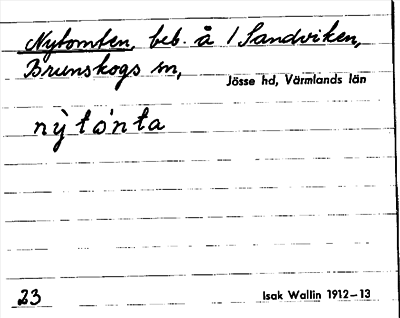 Nytomten, beb. å / Sandviken,
Brunskogs sn,
Jösse hd, Värmlands län
nỳ tónta
23
Isak Wallin 1912–13